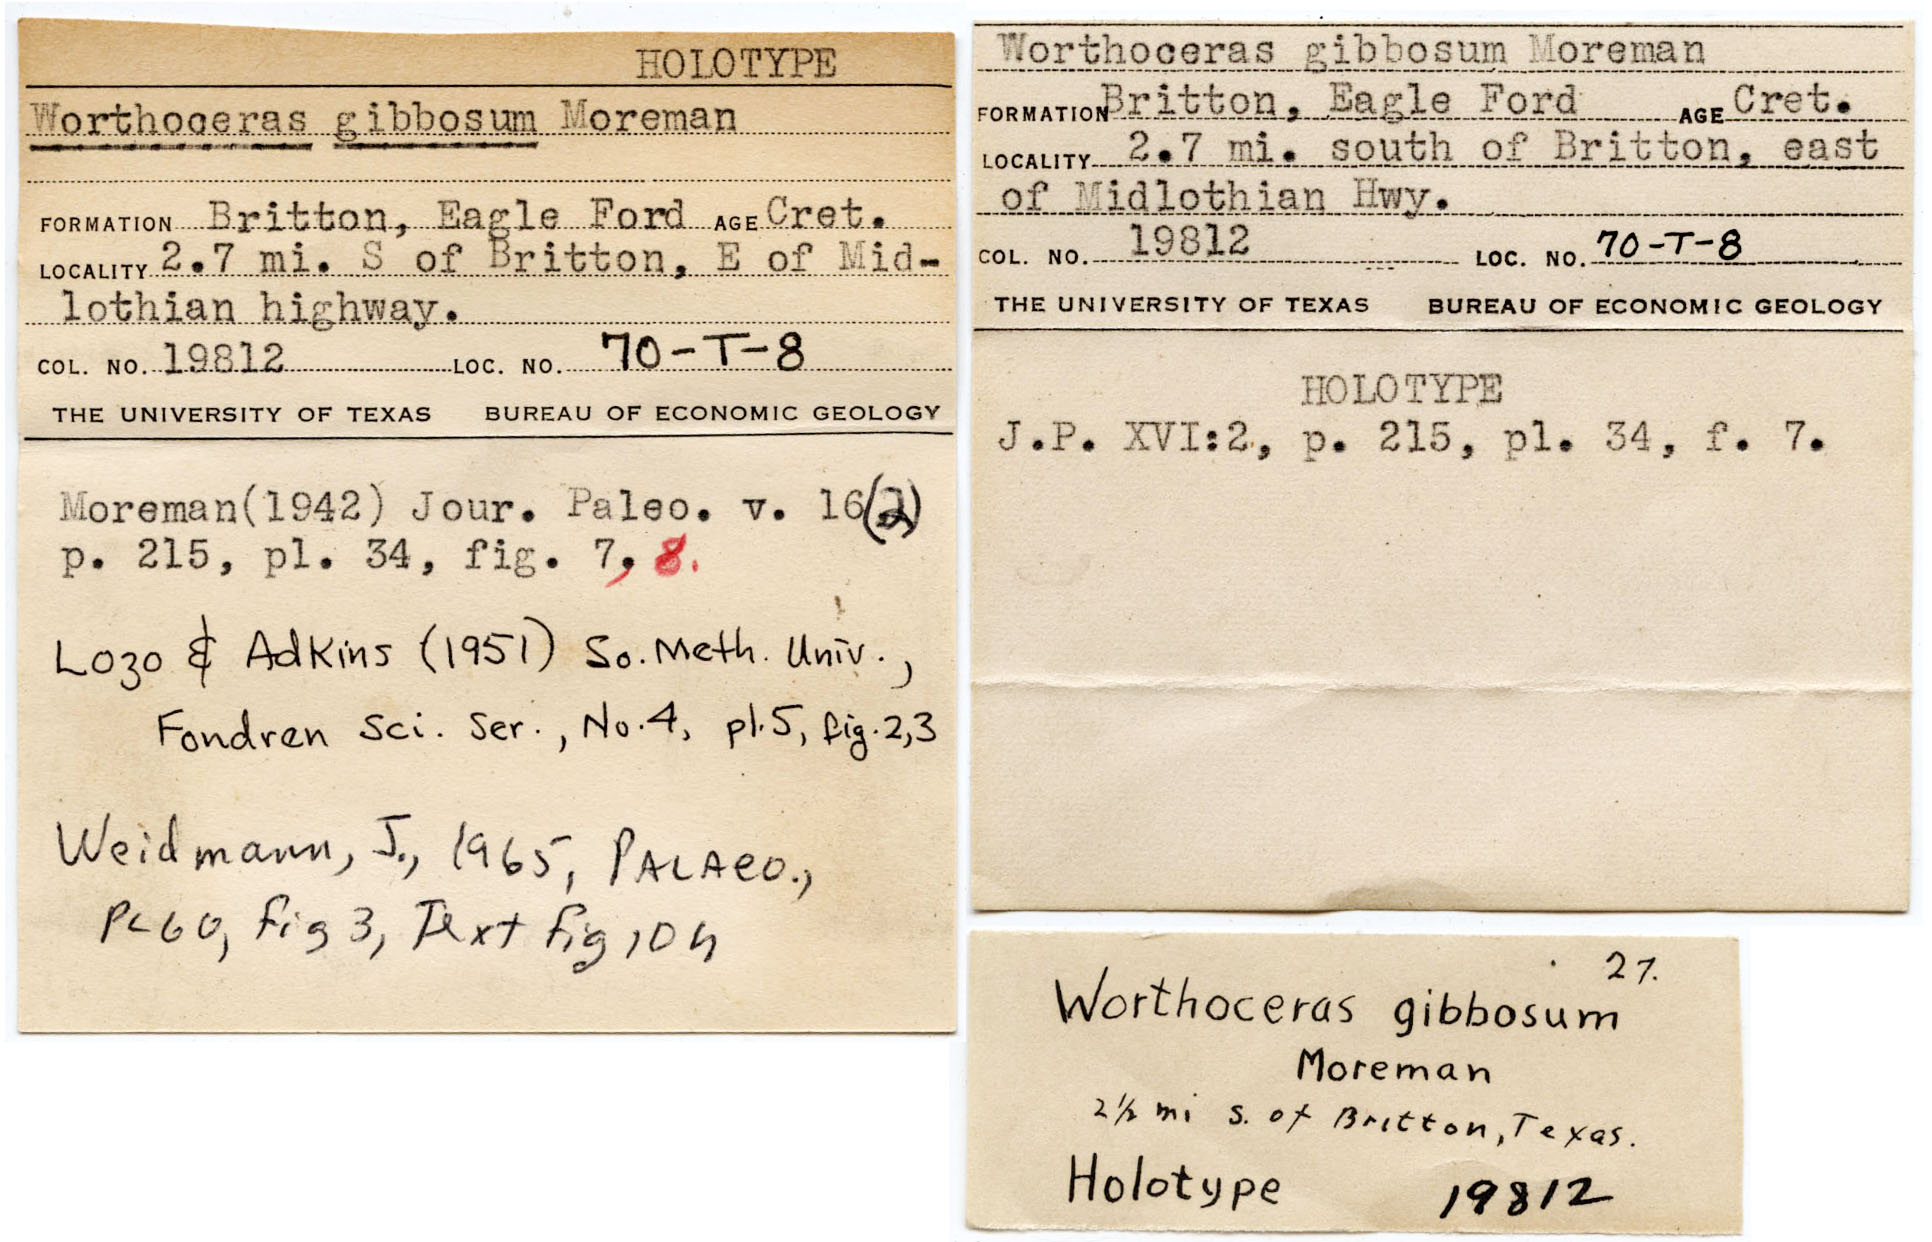 HOLOTYPE
Worthoceras gibbosum Moreman
FORMATION Britton, Eagle Ford AGE Cret.
LOCALITY 2.7 mi. S of Britton, E of Mid-
lothian highway.
COL. NO. 19812 LOC. NO. 70-T-8
THE UNIVERSITY OF TEXAS BUREAU OF ECONOMIC GEOLOGY
Moreman(1942) Jour. Paleo. v. 16(2)
p. 215, pl. 34, fig. 7, 8.
Lozo & Adkins (1951) So. Meth. Univ.,
Fondren Sci. Ser., No. 4, pl. 5, fig. 2,3
Weidmann, J., 1965, PALAEO.,
PL 60, fig 3, Text fig 10 h
Worthoceras gibbosum Moreman
FORMATION Britton, Eagle Ford AGE Cret.
LOCALITY 2.7 mi. south of Britton, east
of Midlothian Hwy.
COL. NO. 19812 LOC. NO. 70-T-8
THE UNIVERSITY OF TEXAS BUREAU OF ECONOMIC GEOLOGY
HOLOTYPE
J.P. XVI:2, p. 215, pl. 34, f. 7.
27.
Worthoceras gibbosum
Moreman
2½ mi S. of Britton, Texas.
Holotype 19812